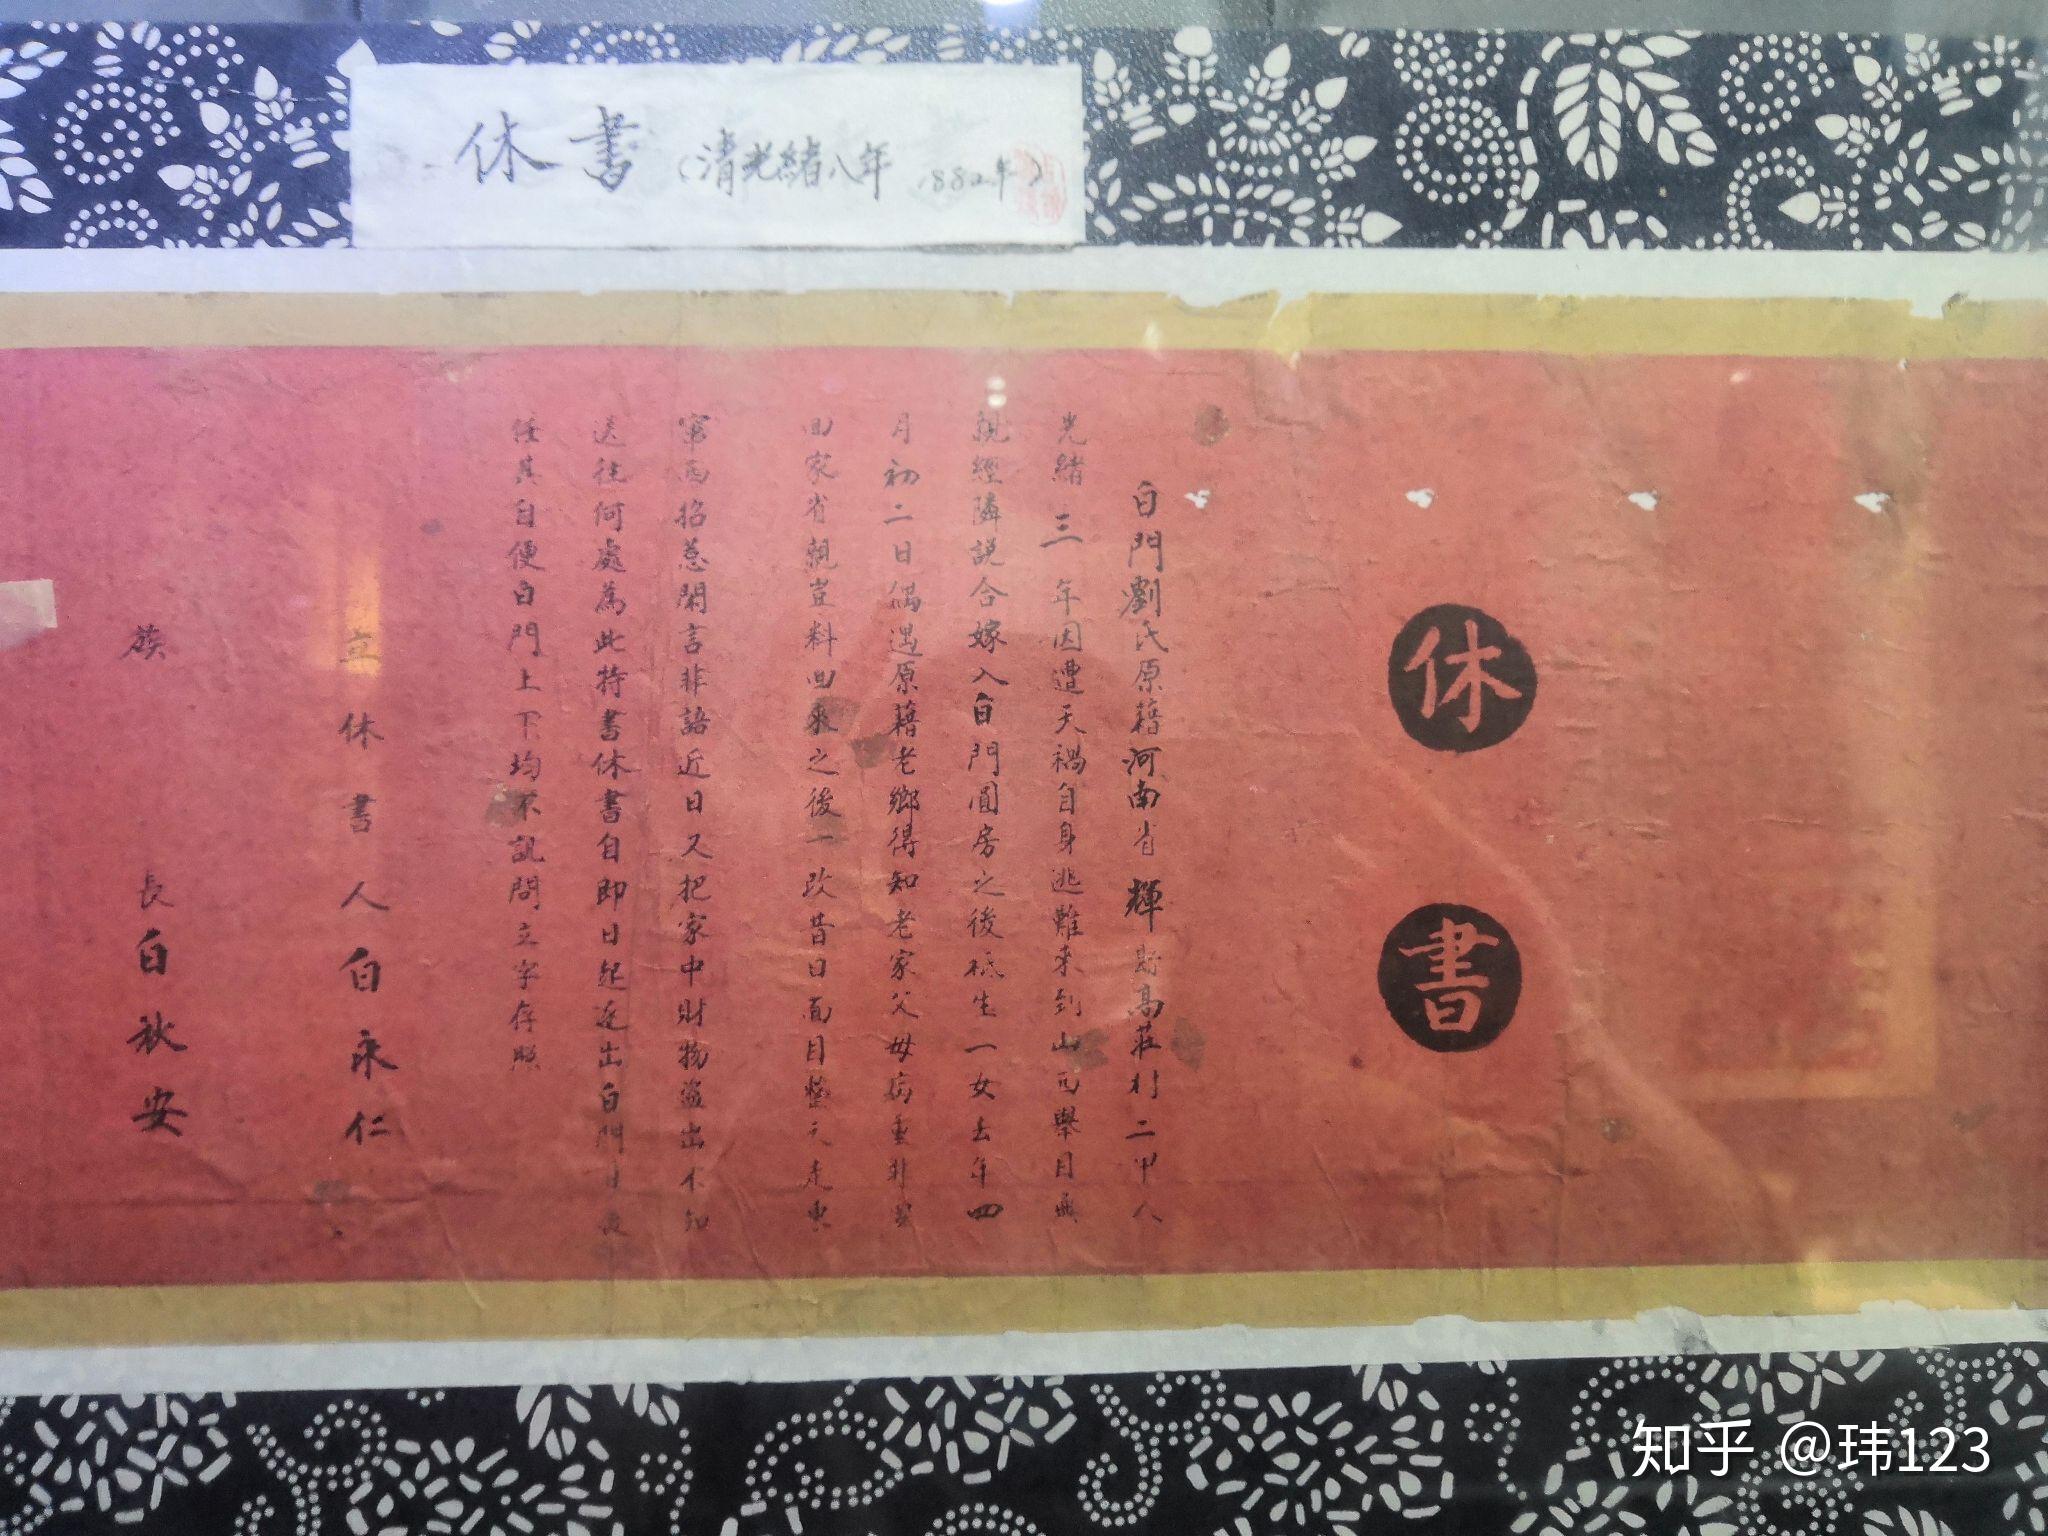 休書（清光緒八年 1882年）
休書
白門劉氏原藉河南省輝縣高莊村二甲人
光緒三年因遭天禍自身逃難來到山西舉目無
親經隣説合嫁入白門圓房之後祇生一女去年四
月初二日偶遇原藉老鄉得知老家父母病重
回家省親豈料回來之後一改昔日面目整天走東
竄西招惹閑言非語近日又把家中財物盜出不知
送往何處為此特書休書自即日起逐出白門日後
任其自便白門上下均不訊問立字存照
立休書人白永仁
族長白秋安
知乎 @玮123